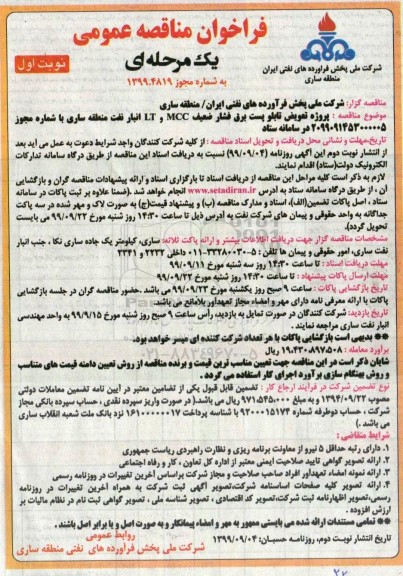 فراخوان مناقصه عمومی
یک مرحله‌ای
نوبت اول
به شماره مجوز ۱۳۹۹،۴۸۱۹
شرکت ملی پخش فرآورده های نفتی ایران
منطقه ساری
مناقصه گزار: شرکت ملی پخش فرآورده های نفتی ایران/ منطقه ساری
موضوع مناقصه : پروژه تعویض تابلو پست برق فشار ضعیف MCC و LT انبار نفت منطقه ساری با شماره مجوز
۲۰۹۹۰۹۱۴۵۳۰۰۰۰۰۵ در سامانه ستاد
تاریخ،مهلت و نشانی محل دریافت و تحویل اسناد مناقصه :از کلیه شرکت کنندگان واجد شرایط دعوت به عمل می آید بعد
از انتشار نوبت دوم این آگهی روزنامه (۹۹/۰۹/۰۴) نسبت به دریافت اسناد این مناقصه از طریق درگاه سامانه تدارکات
الکترونیک دولت(ستاد) اقدام نمایند.
لازم به ذکر است کلیه مراحل این مناقصه از دریافت اسناد تا بارگزاری اسناد و ارائه پیشنهادات مناقصه گران و بازگشایی
آن ، از طریق درگاه سامانه ستاد به آدرس www.setadiran.ir انجام خواهد شد .(ضمنا علاوه بر ثبت پاکات در سامانه
ستاد ، اصل پاکات تضمین(الف)، اسناد و مدارک مناقصه (ب) و پیشنهاد قیمت(ج) به صورت لاک و مهر شده در سه پاکت
جداگانه به واحد حقوقی و پیمان های شرکت نفت به آدرس ذیل تا ساعت ۱۴:۳۰ روز شنبه مورخ ۹۹/۰۹/۲۲ می بایست
تحویل گردد).
مشخصات مناقصه گزار جهت دریافت اطلاعات بیشتر و ارائه پاکت ثلاثه: ساری، کیلومتر یک جاده ساری نکا ، جنب انبار
نفت ساری، امور حقوقی و پیمان ها تلفن : ۵-۰۱۱-۳۳۲۸۰۰۳۰ داخلی ۲۲۳۲ و ۲۳۴۱
مهلت دریافت اسناد : تا ساعت ۱۴:۳۰ روز سه شنبه مورخ ۹۹/۰۹/۱۱
مهلت ارسال پاکات پیشنهاد : تا ساعت ۱۴:۳۰ روز شنبه مورخ ۹۹/۰۹/۲۲
تاریخ بازگشایی پاکات : ساعت ۹ صبح روز یکشنبه مورخ ۹۹/۰۹/۲۳ می باشد .حضور مناقصه گران در جلسه بازگشایی
پاکات با ارائه معرفی نامه دارای مهر و امضاء مجاز تعهدآور بلامانع می باشد.
تاریخ بازدید: شرکت کنندگان در صورت تمایل به بازدید، رأس ساعت ۹ صبح روز شنبه مورخ ۹۹/۰۹/۱۵ به واحد مهندسی
انبار نفت ساری مراجعه نمایند .
** بدیهی است بازگشایی پاکات با هر تعداد شرکت کننده ای میسر خواهد بود.
برآورد معامله : ۱۹،۴۳۰،۸۹۷،۵۰۸ ریال
شایان ذکر است در این مناقصه جهت تعیین مناسب ترین قیمت و برنده مناقصه از روش تعیین دامنه قیمت های متناسب
و روش بهنگام سازی برآورد اجرای کار استفاده می گردد .
نوع تضمین شرکت در فرآیند ارجاع کار : تضمین قابل قبول یکی از تضامین معتبر در آیین نامه تضمین معاملات دولتی
مصوب ۱۳۹۴/۰۹/۲۲ و به مبلغ ۹۷۱،۵۴۵،۰۰۰ ریال می باشد.( در صورت واریز سپرده نقدی ، حساب سپرده بانکی مجاز
شرکت ، حساب دوطرفه شماره ۹۲۰۰۰۱۵۱۷۴ با شناسه پرداخت ۱۶۱۰۰۰۰۰۰۱۷ نزد بانک ملت شعبه انقلاب ساری
می باشد .)
شرایط متقاضی :
۱. دارای رتبه حداقل ۵ نیرو از معاونت برنامه ریزی و نظارت راهبردی ریاست جمهوری
۲. ارائه تصویر گواهی تایید صلاحیت ایمنی معتبر از اداره کل تعاون ، کار و رفاه اجتماعی
۳. ارائه نمونه امضاء تعهدآور افراد صاحب صلاحیت و مجاز شرکت براساس آخرین تغییرات در روزنامه رسمی
۴. ارائه تصویر کلیه صفحات اساسنامه شرکت،تصویر آگهی ثبت شرکت به همراه آخرین تغییرات در روزنامه
رسمی،تصویر اظهارنامه ثبت شرکت،تصویر کد اقتصادی ، تصویر شناسه ملی ، تصویر گواهی ثبت نام در نظام مالیات بر
ارزش افزوده .
** تمامی مستندات ارائه شده می بایستی ممهور به مهر و امضاء پیمانکار و به صورت اصل و یا برابر اصل باشند .
تاریخ انتشار نوبت دوم، روزنامه حسبان: ۱۳۹۹/۰۹/۰۴
روابط عمومی
شرکت ملی پخش فرآورده های نفتی منطقه ساری